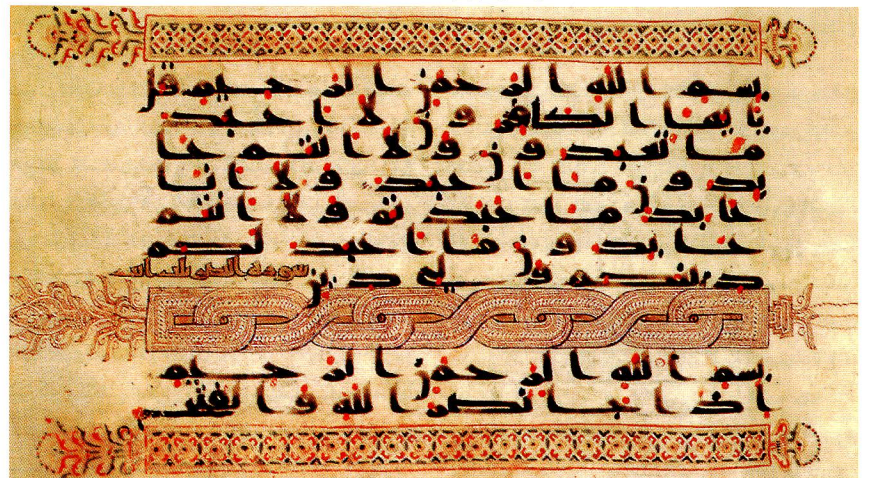 بسم الله الرحمن الرحيم قل
يا يها الكفرون لا اعبد
ما تعبدون ولا انتم عا
بدون ما اعبد ولا انا
عابد ما عبدتم ولا انتم
عابدون ما اعبد لكم
دينكم ولي دين
سورة النصر
بسم الله الرحمن الرحيم
اذا جا نصر الله والفتح